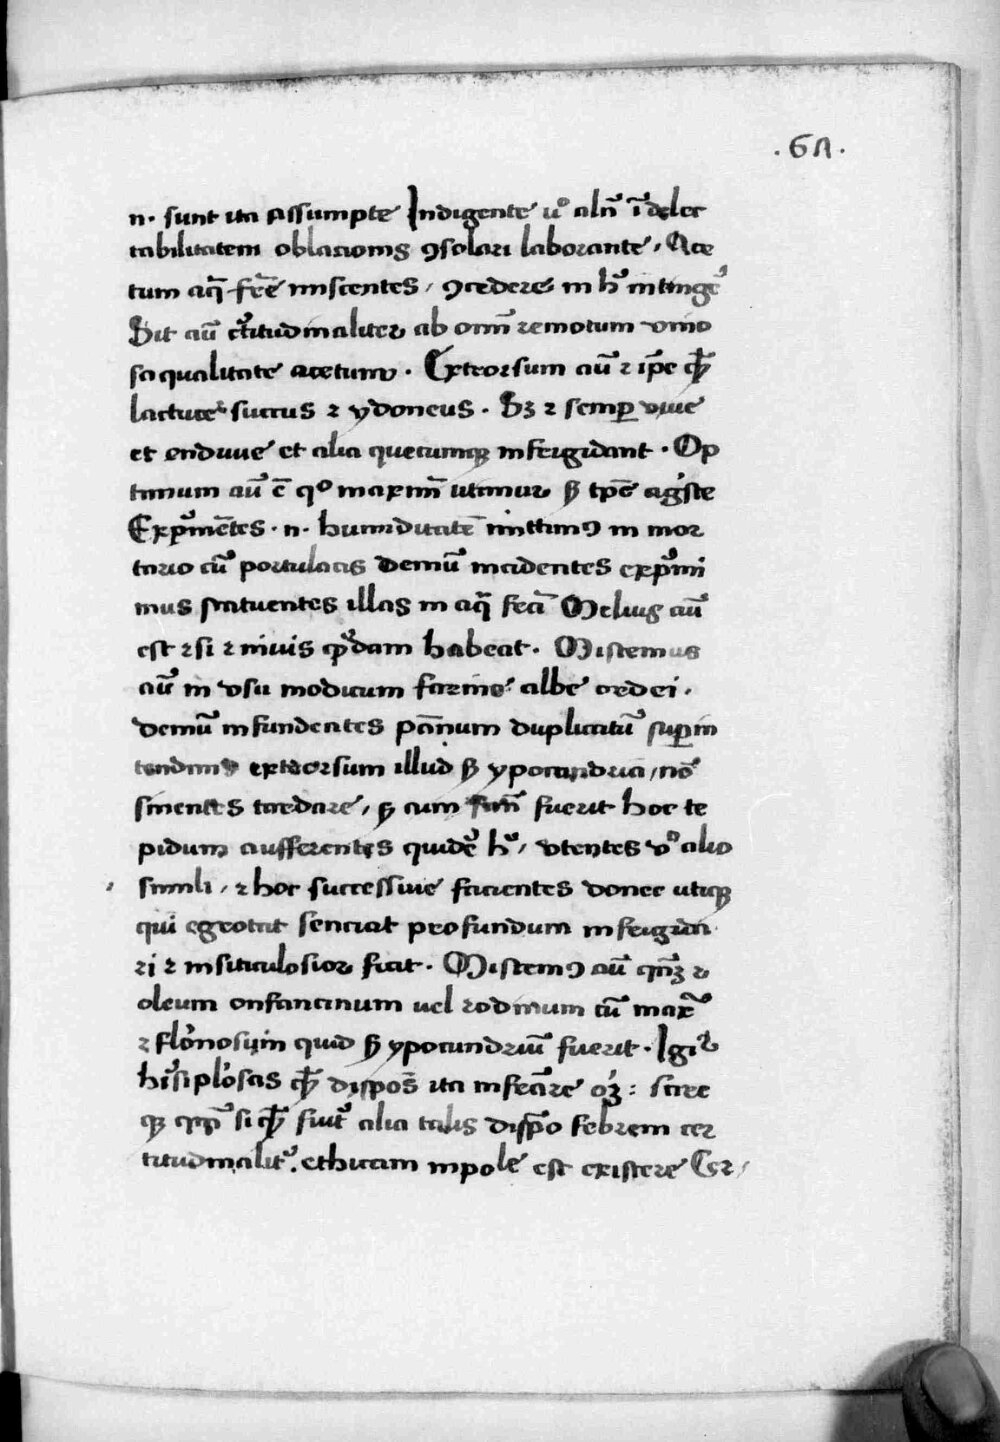 .6Λ.
n. sunt ita assumpte Indigente u° alr̄ ī delec
tabilitatem oblationis ꝯsolari laborante, Ace
tum aq̄ fcē miscentes, ꝯcedere in h° intinge
Sit aū ctitudinaliter ab omī remotum vino
sa qualitate acetum. Exteorsum aū ⁊ ip̄e
lactuce succus ⁊ ydoneus. Sꝫ ⁊ semꝑ vive
et endivie et alia quecumqꝫ infrigidant. Op
timum aū ē q° maxim̄ utimur tp̄e
Exp̄mētes. n. humiditatē mittimꝯ in mor
tario cū portulacis demū incidentes exp̄mi
mus statuentes illas in aq̄ fcā Melius aū
est ⁊ si ⁊ nivis q̄dam habeat. Miscemus
aū in usu modicum farine albe ordei.
demū infundentes pānum duplicatū suꝑin
tendimꝯ exteorsum illud ypocundria, nō
sinentes tardare, cum fuerit hoc te
pidum aufferentes quidē h°, utentes v° alio
simili, ⁊ hoc successive facientes donec utiqꝫ
qui egrotat senciat profundum infrigida
ri ⁊ insiticulosior fiat. Miscemꝯ aū ⁊
oleum onfancinum vel rodinum cū
⁊ quid ypocundriū fuerit. Igit̄
dispos̄ ita oꝫ: scire
qꝫ si alia talis disp̄o febrem cer
titudinalit̄. ethicam inpole est existere Er,